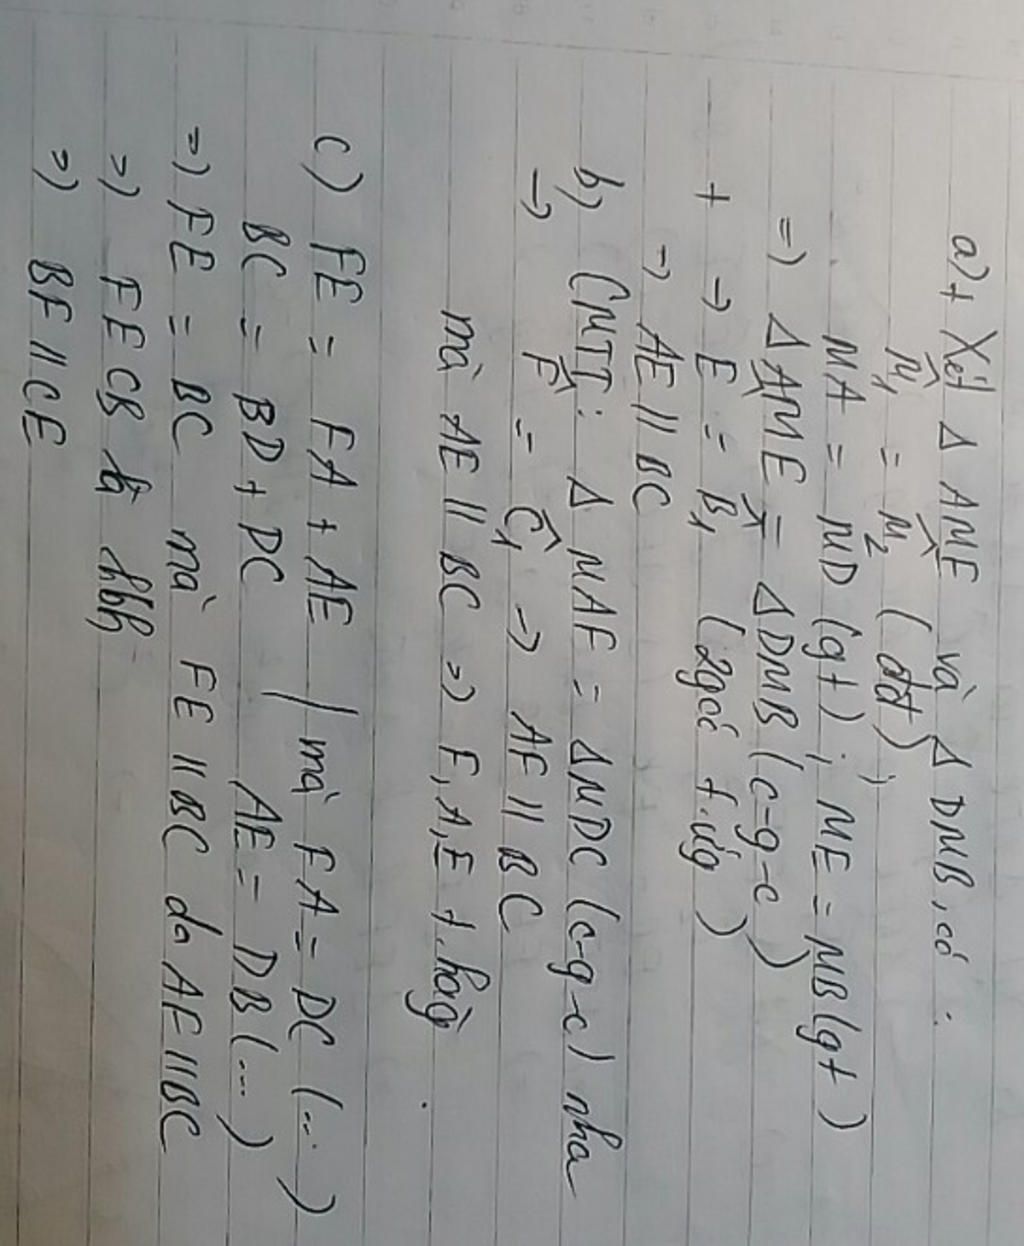 a) + Xét Δ AME và Δ DMB, có :
M̂₁ = M̂₂ (đđ) ;
MA = MD (gt) ; ME = MB (gt)
=) Δ AME = Δ DMB (c-g-c)
+ → Ê = B̂₁ (2góć t.ứg)
→ AE // BC
b) CMTT: Δ MAF = Δ MDC (c-g-c) nha
→ F̂ = Ĉ₁ → AF // BC
mà AE // BC =) F, A, E t.hàg.
c) FE = FA + AE | mà FA = DC (...)
BC = BD + DC AE = DB (...)
=) FE = BC mà FE // BC do AE // BC
=) FECB là hbh
=) BF // CE